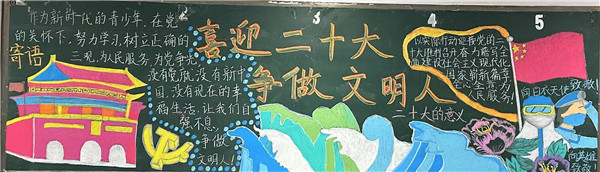 2 3 4 5
作为新时代的青少年,在党
的关怀下,努力学习,树立正确的
三观,为民服务,为党争光
寄语
没有党就没有新中
国,没有现在的幸
福生活,让我们自
强不息,
争做
文明人!
喜迎二十大
争做文明人
以实际行动迎接党的二
十大胜利召开,奋力谱写全
面建设社会主义现代化
国家崭新篇章
全心全意为
人民服务!
二十大的意义
向白衣天使致敬!
向英雄
致敬!